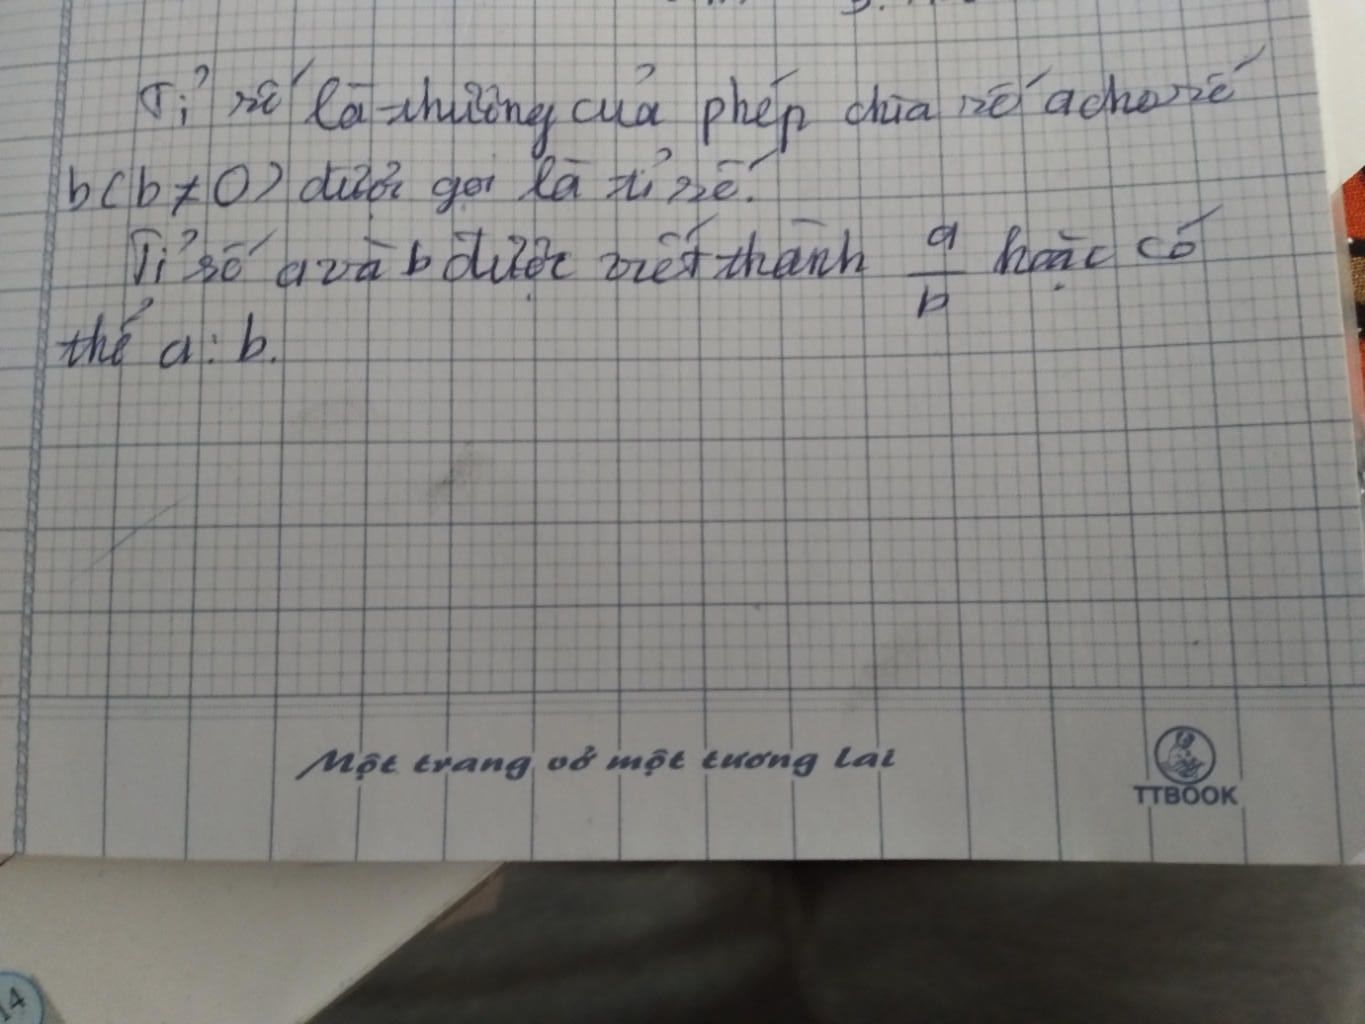 Tỉ số là thường của phép chia số a cho số
b (b ≠ 0) được gọi là tỉ số.
Tỉ số a và b được viết thành a/b hoặc có
thể a : b.
Một trang vở một tương lai
TTBOOK
14